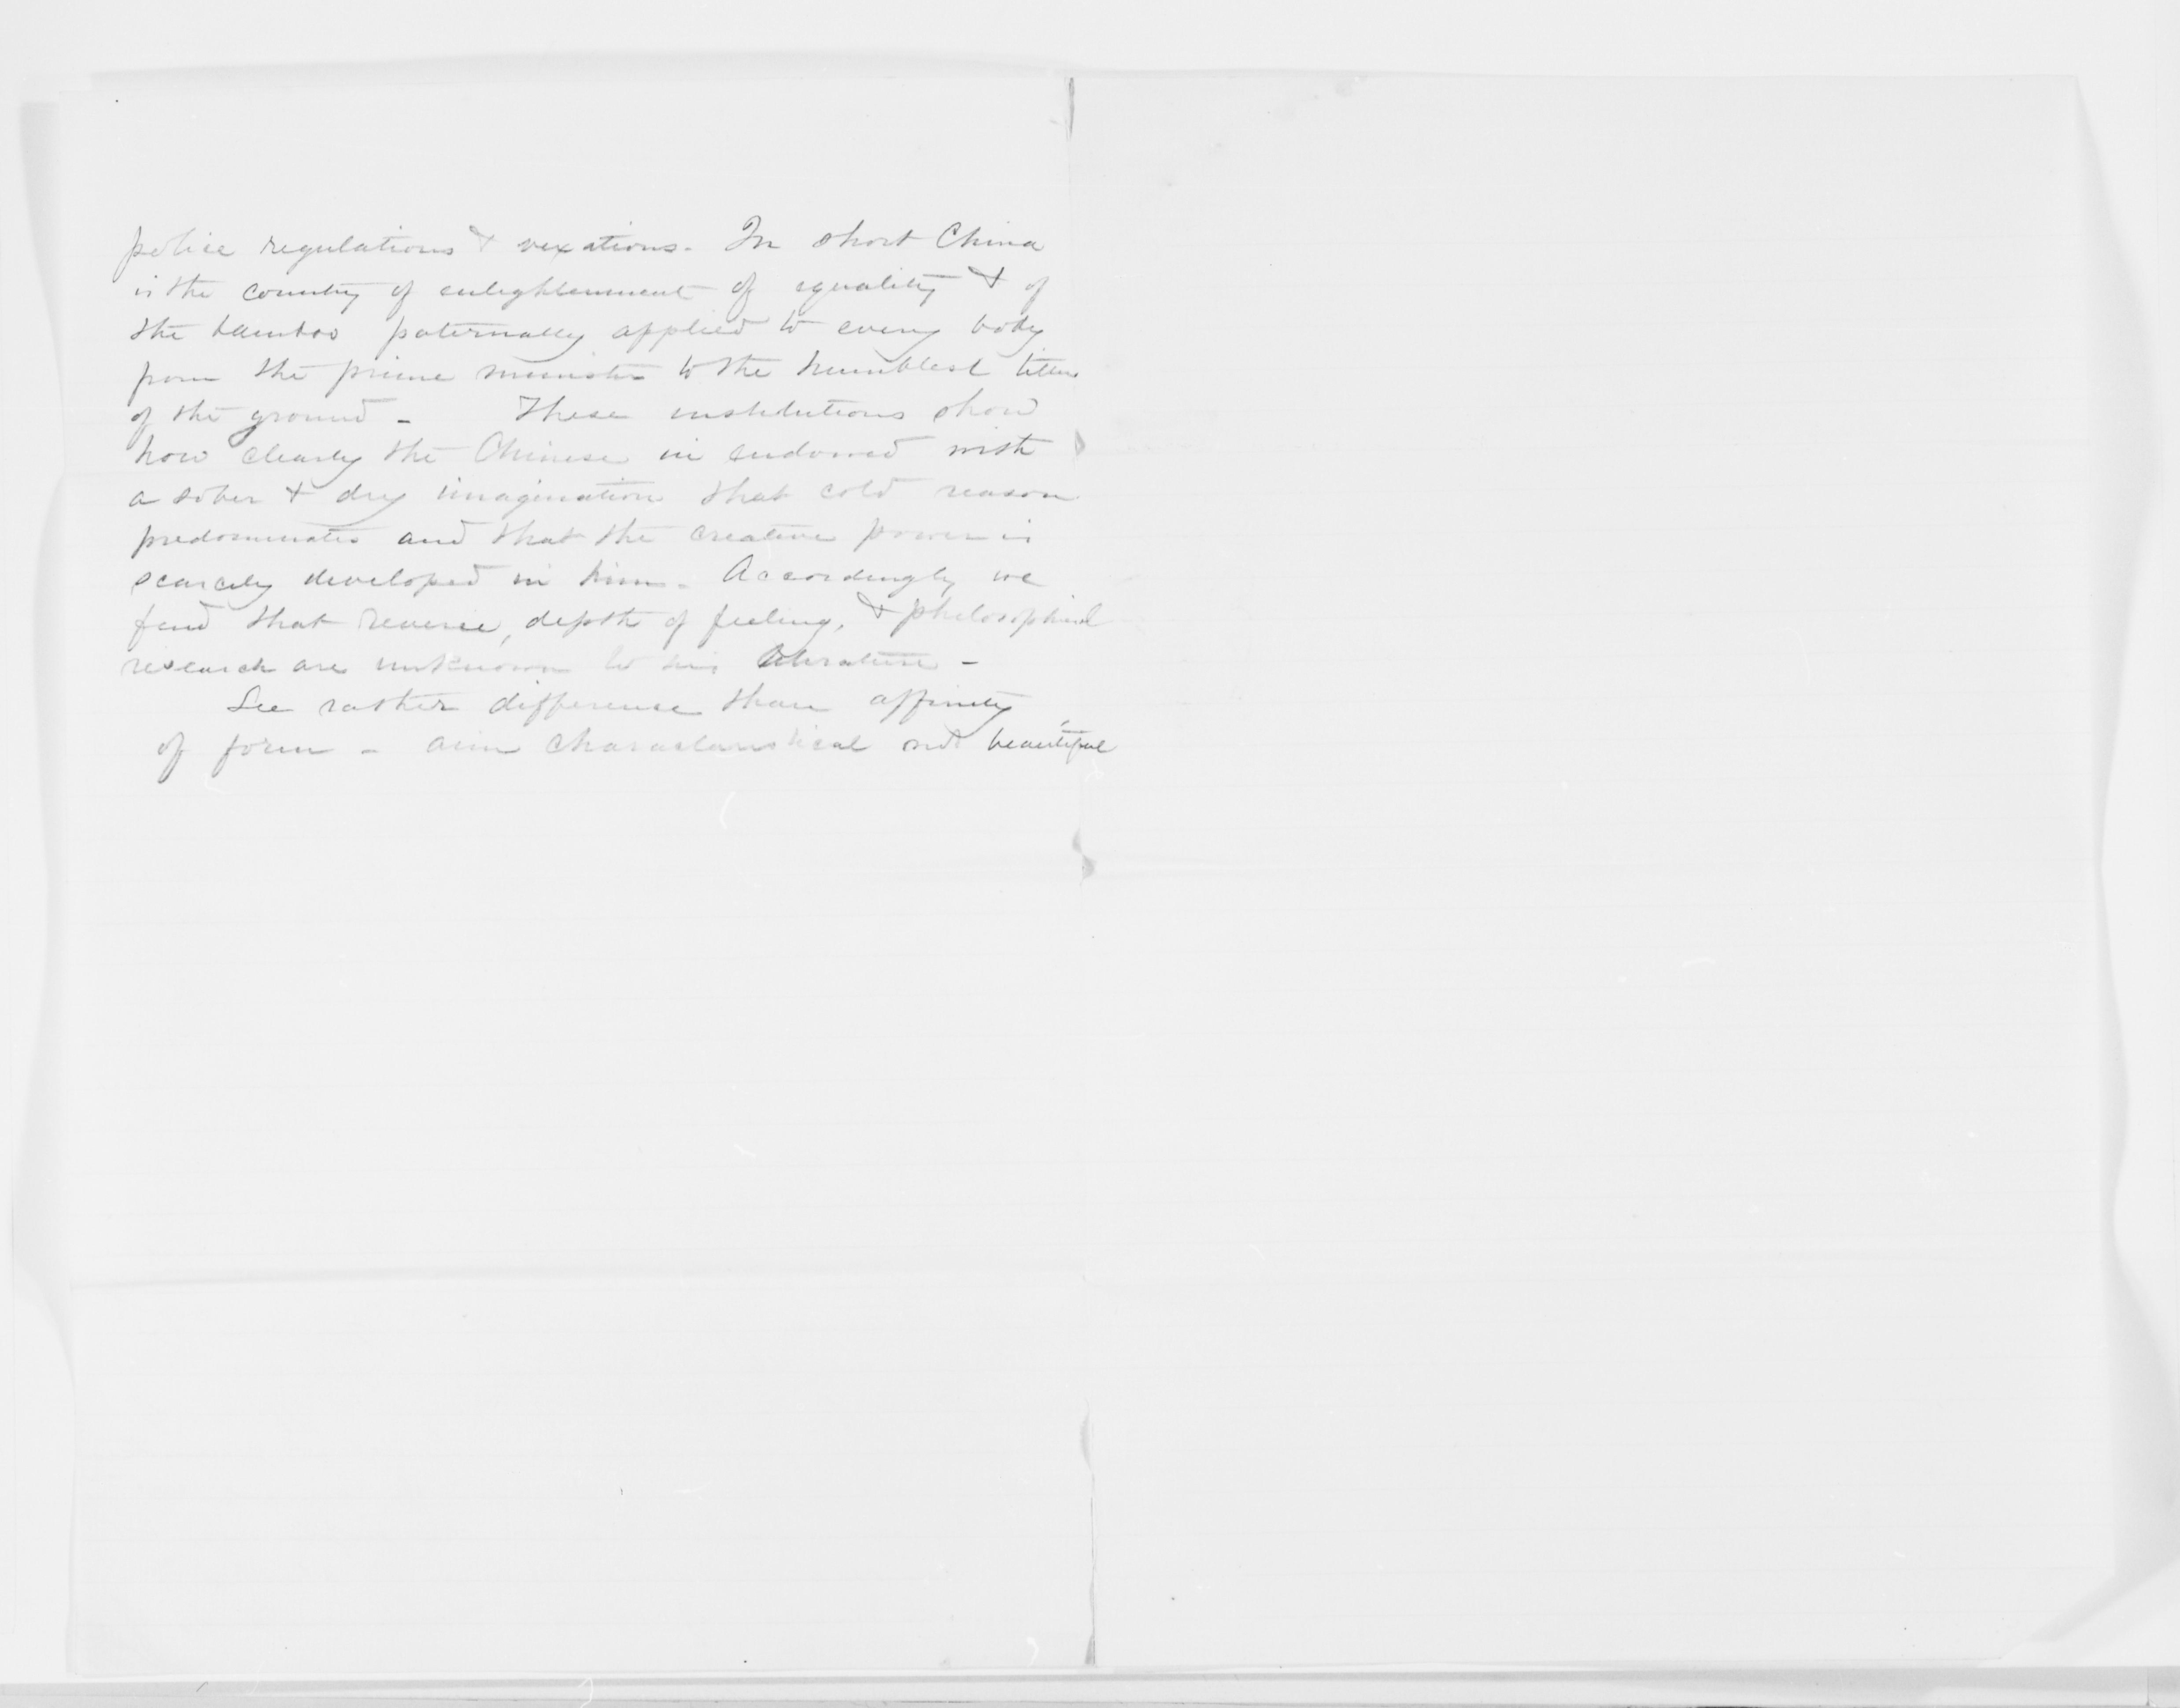 police regulations & vexations. In short China
is the country of enlightenment of equality & of
the bamboo paternally applied to every body
from the prime minister to the humblest tiller
of the ground - These institutions show
how clearly the Chinese in endowed with
a sober & dry imagination that cold reason
predominates and that the creative power is
scarcely developed in him. Accordingly we
find that reverie, depth of feeling, & philosophical
research are unknown to his literature -
See rather difference than affinity
of form - aim characteristical not beautiful